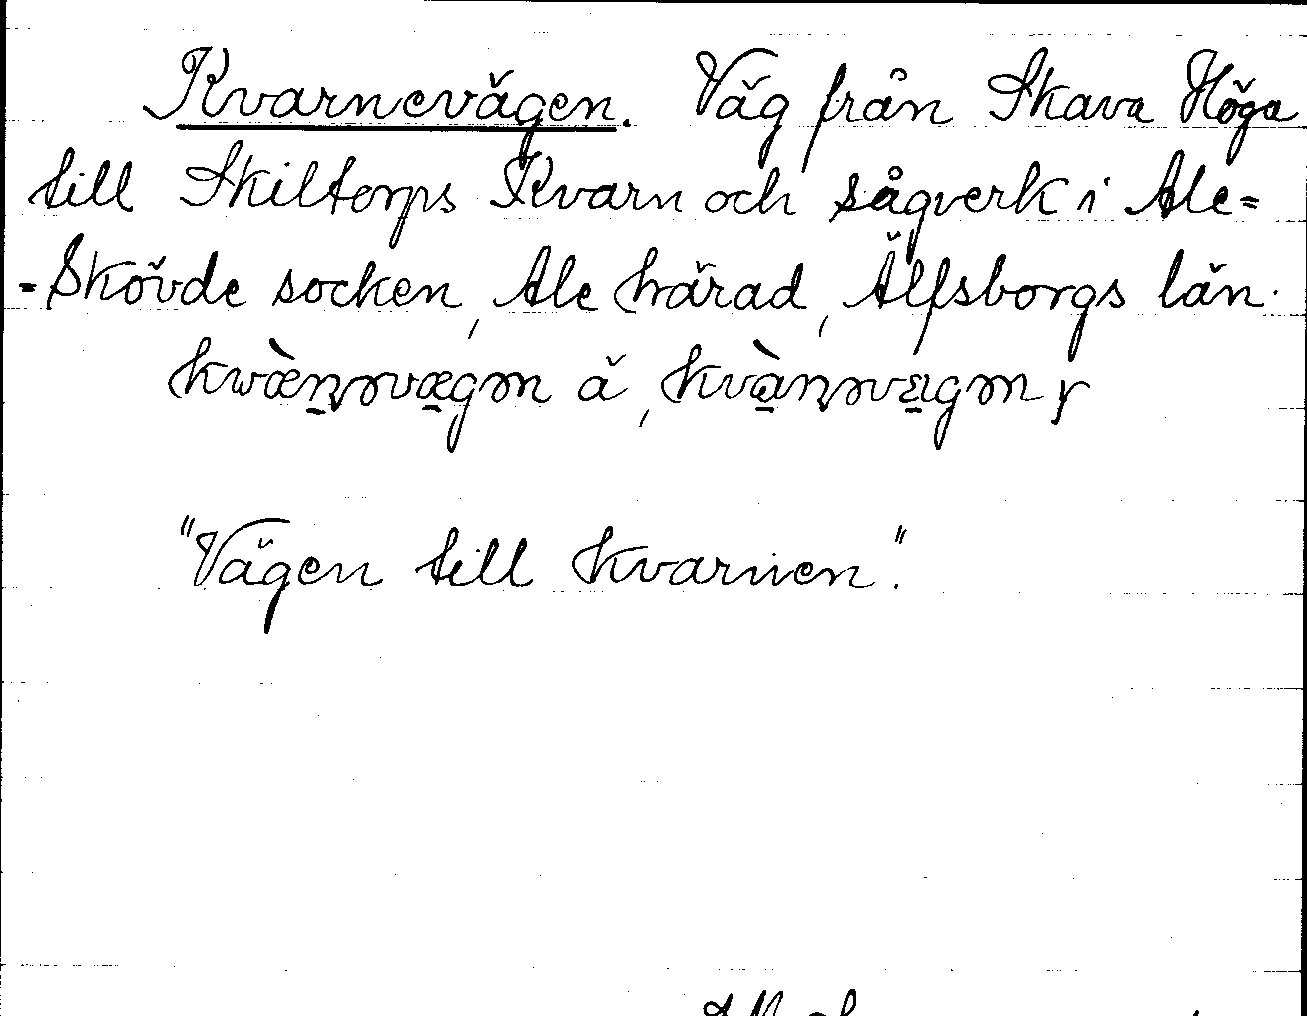 Kvarnevägen. Väg från Skava Höga
till Skiltorps Kvarn och sågverk i Ale=
=Skövde socken, Ale härad, Älfsborgs län.
ä,
"Vägen till kvarnen".